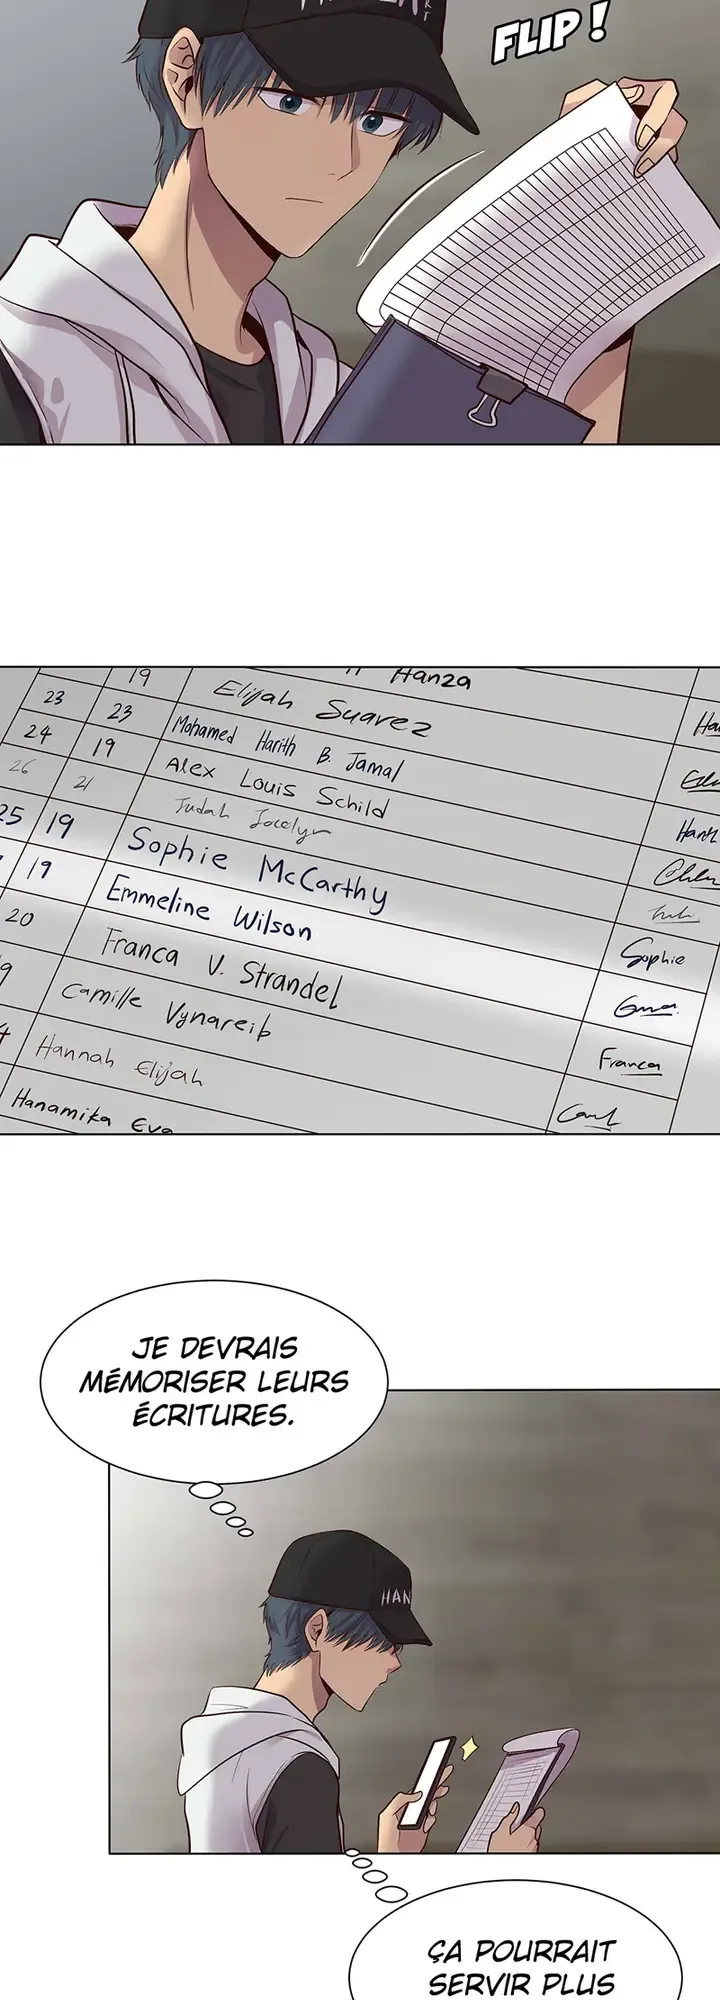 FLIP !
19 Hanza
23 23 Elijah Suarez
24 19 Mohamed Harith B. Jamal
26 21 Alex Louis Schild
25 19 Judah Jocelyn
19 Sophie McCarthy Sophie
20 Emmeline Wilson
Franca V. Strandel Franca
Camille Vynareib
Hannah Elijah
Hanamika Eva
JE DEVRAIS
MÉMORISER LEURS
ÉCRITURES.
HAN
ÇA POURRAIT
SERVIR PLUS